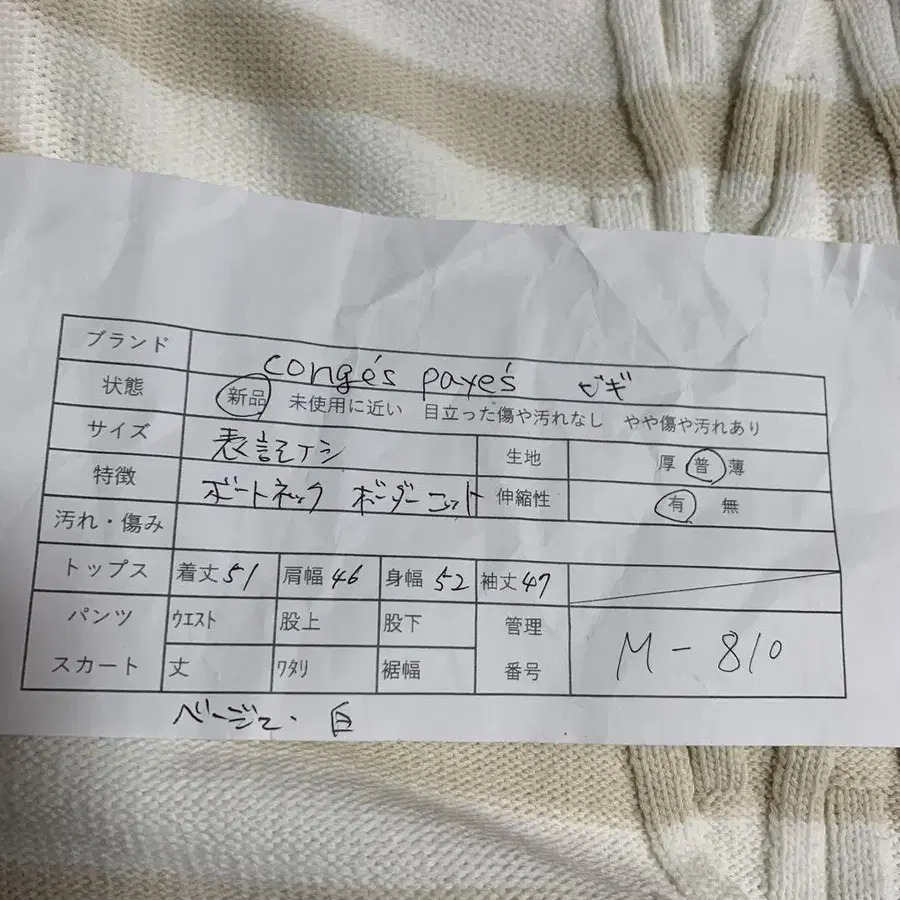 ブランド congés payés ビギ
状態 新品 未使用に近い 目立った傷や汚れなし やや傷や汚れあり
サイズ 表記ナシ 生地 厚 普 薄
特徴 ボートネック ボーダーニット 伸縮性 有 無
汚れ・傷み
トップス 着丈51 肩幅46 身幅52 袖丈47
パンツ ウエスト 股上 股下 管理
スカート 丈 ワタリ 裾幅 番号 M-810
ベージュ・白